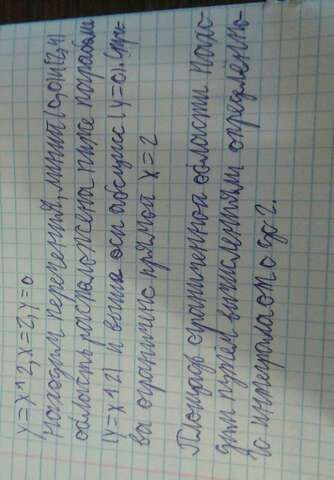 y=x^2, x=2, y=0
Находим пересечения линий (0,0) и (2,4)
область расположена ниже параболы
(y=x^2) и выше оси абсцисс (y=0). Справа
ва ограничено прямой x=2
Площадь ограниченной области нахо-
дим путем вычисления определенно-
го интеграла от 0 до 2.